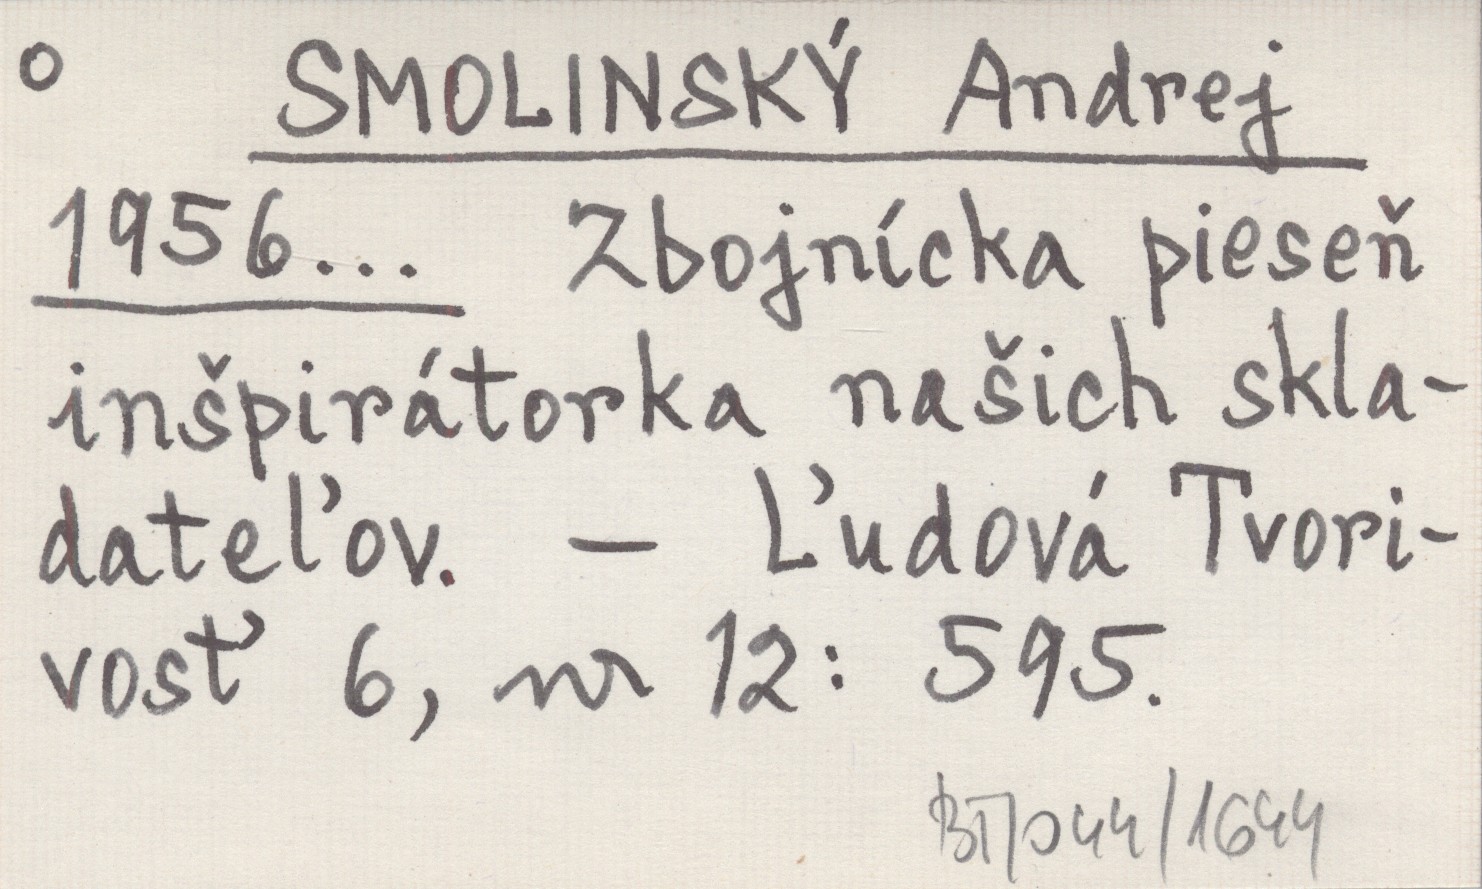 o SMOLINSKÝ Andrej
1956... Zbojnícka pieseň
inšpirátorka našich skla-
dateľov. — Ľudová Tvori-
vosť 6, nr 12: 595.
BT/044/1644